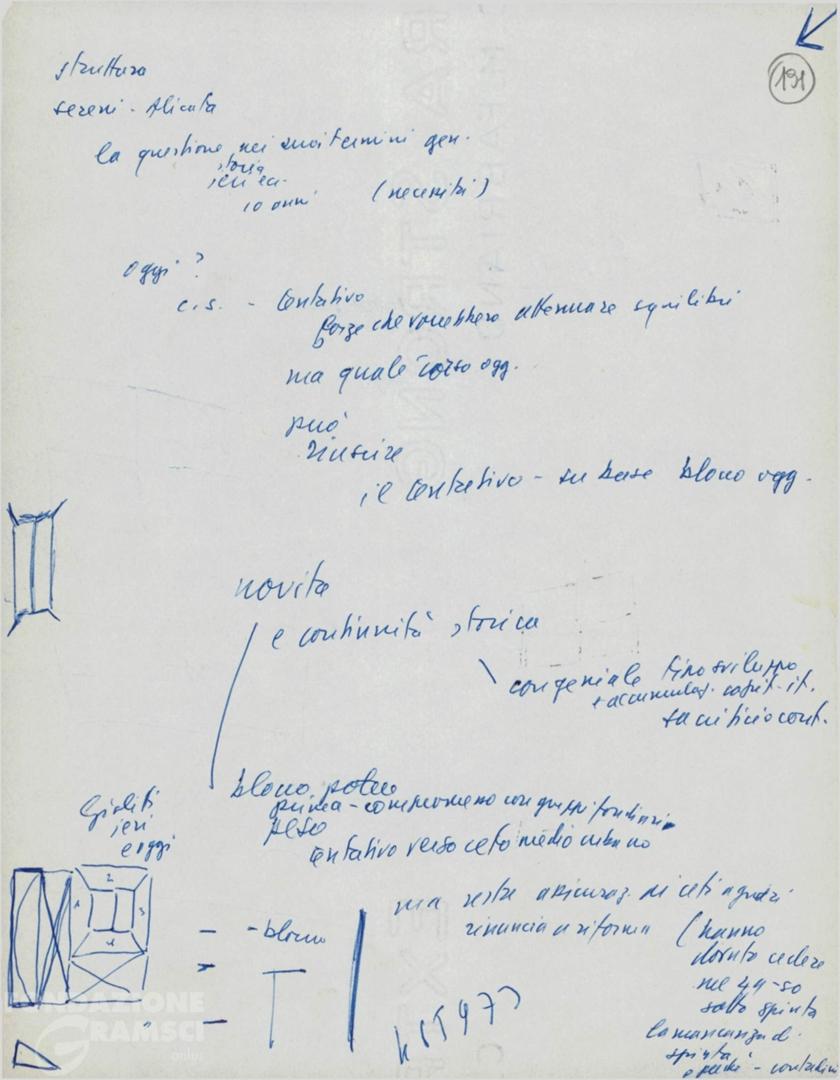 191
struttura
sereni - Alicata
la questione nei suoi termini gen.
storia
ieri ec.
10 anni (necessità)
oggi ?
c.s. - tentativo
forze che vorrebbero attenuare squilibri
ma quale corso ogg.
può
riuscire
il tentativo - su base blocco ogg.
novità
e continuità storica
congeniale tipo sviluppo
+ accumulaz. capit. it.
sacrificio cont.
blocco potere
prima - compromesso con gruppi fondiari
peso
tentativo verso ceto medio urbano
Gioliti
ieri
e oggi
ma resta assicuraz. di ceti agrari
rinuncia a riforma (hanno
dovuto cedere
nel 49-50
sotto spinta
la mancanza di
spinta
e perché - contadini
- blocco
1
2
3
4
FONDAZIONE
GRAMSCI
onlus